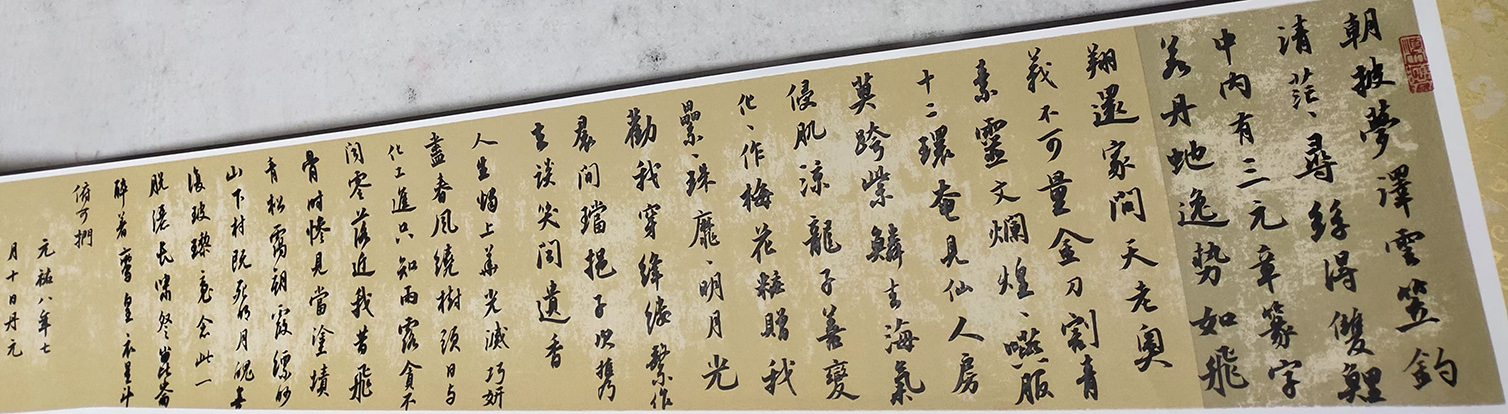 朝披夢澤雲笠釣
清茫、尋絲得雙鯉
中内有三元章篆字
若丹虵逸勢如飛
翔還家問天老奧
義不可量金刀割青
素靈文爛煌、嚥服
十二環奄見仙人房
莫跨紫鱗去海氣
侵肌涼龍子善變
化、作梅花粧贈我
纍、珠靡、明月光
勸我穿絳縷繫作
裙間璫挹子以攜
去談笑聞遺香
人生燭上華光滅巧妍
盡春風繞樹頭日與
化工進只知雨露貪不
聞零落近我昔飛
骨時慘見當塗墳
青松靄朝霞縹緲
山下村既死明月魄無
復玻瓈魂念此一
脫灑長嘯登崑崙
醉著鸞皇衣星斗
俯可捫
元祐八年七
月十日丹元